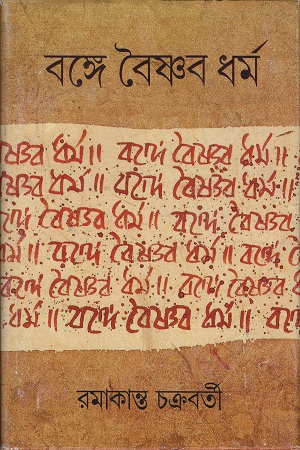 বঙ্গে বৈষ্ণব ধর্ম
ষ্ণব ধর্ম॥ বঙ্গে বৈষ্ণব ধর্ম॥
বৈষ্ণব ধর্ম॥ বঙ্গে বৈষ্ণব ধর্ম॥
বঙ্গে বৈষ্ণব ধর্ম॥ বঙ্গে বৈষ্ণব
ধর্ম॥ বঙ্গে বৈষ্ণব ধর্ম॥ বঙ্গে বৈ
বঙ্গে বৈষ্ণব ধর্ম॥ বঙ্গে বৈষ্ণব
ধর্ম॥ বঙ্গে বৈষ্ণব ধর্ম॥ বঙ্গে
রমাকান্ত চক্রবর্তী